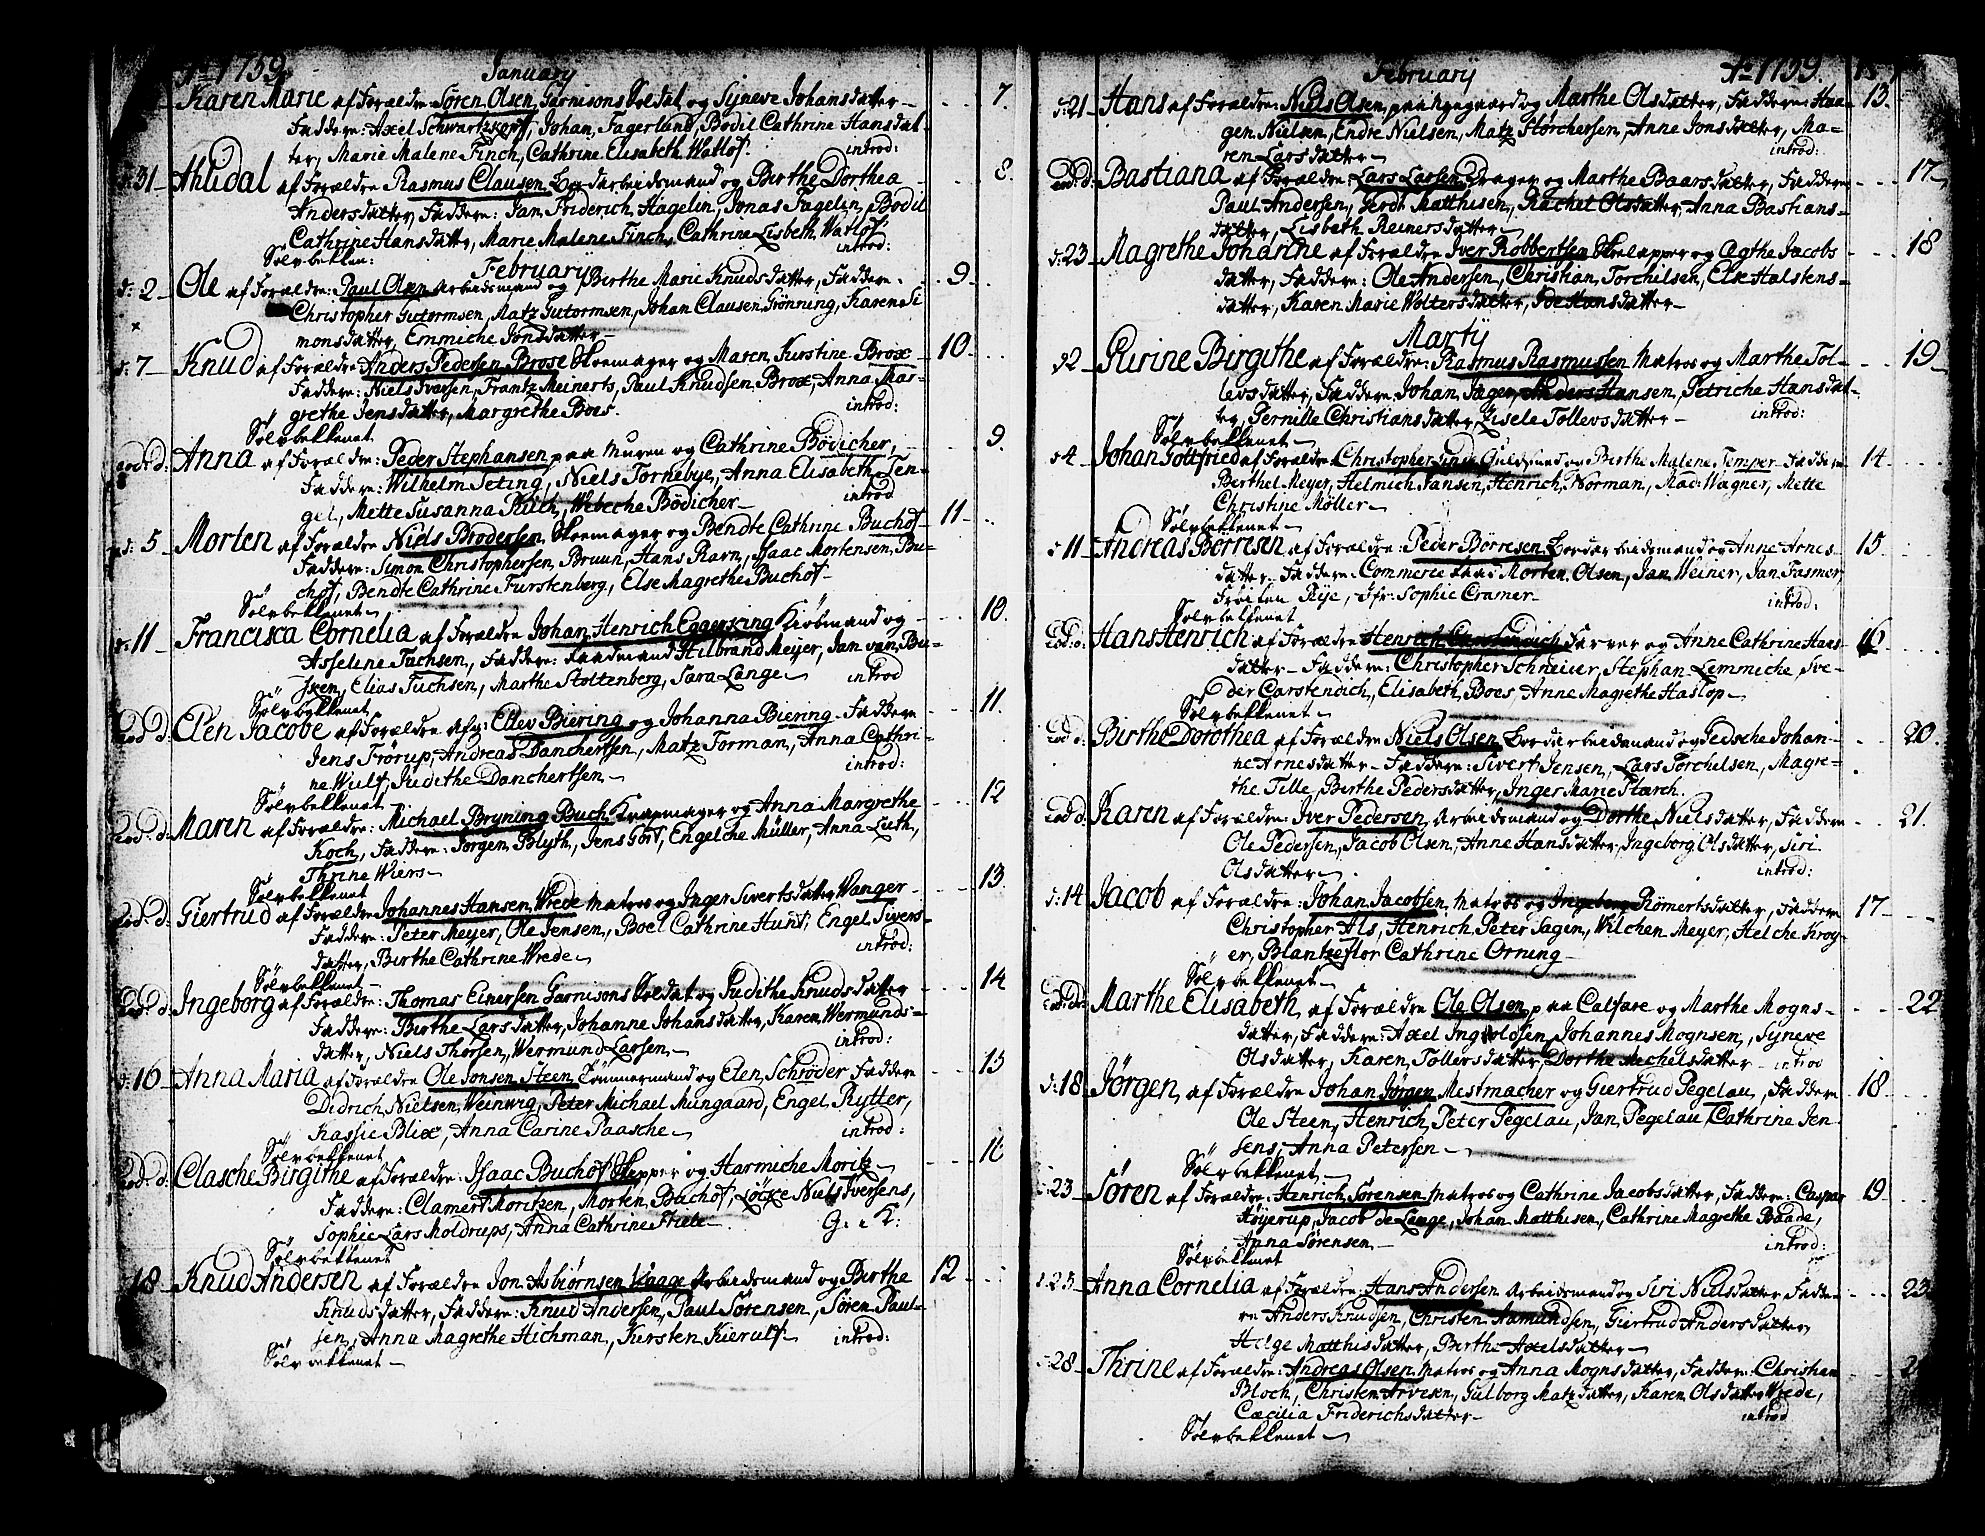 Ao 1759. January
Karen Marie af Forældre Søren Olsen, Garnisons Soldat og Syneve Johansdatter - 7.
Faddere: Axel Schwartzkopf, Johan Fagerland, Bodil Cathrine Hansdat-
ter, Marie Malene Finch, Cathrine Elisabeth Watlof. introd:
d: 31 - Ahlidal af Forældre Rasmus Clausen Bordarbeidsmand og Birthe Dorthea 8.
Andersdatter, Faddere: Jan Friderich Hagelin, Jonas Fagelin, Bodil
Cathrine Hansdatter, Marie Malene Finch, Cathrine Lisbeth Watlof introd:
Sølvbekken:
February
d: 2 - Ole af Forældre: Paul Olsen Arbeidsmand og Birthe Marie Knudsdatter, Faddere. 9
Christopher Gutormsen, Matz Gutormsen, Johan Clausen Grönning, Karen Si
monsdatter, Emmiche Jonsdatter -
d: 7 - Knud af Forældre Anders Pedersen Brose Skoemager og Maren Kirstine Brox 10
Faddere: Niels Iversen, Frantz Meinerts, Paul Knudsen Brox, Anna Mar-
grethe Jensdatter, Margrethe Boes. introd:
Sølvbekkenet
eod: d: Anna af Forældre: Peder Stephansen paa Muren og Cathrine Bödicher, 9.
Faddere: Wilhelm Teting, Niels Tornebye, Anna Elisabeth Ten-
gel, Mette Susanna Rüth, Webeche Bödicher - introd
d: 5 - Morten af Forældre Niels Brodersen Skoemager og Bendte Cathrine Buchof 11
Faddere: Simon Christophersen, Bruun, Hans Rarn, Isaac Mortensen Bu-
chof, Bendte Cathrine Furstenberg, Else Magrethe Buchof -
Sølvbekkenet
d: 11 - Francisca Cornelia af Forældre Johan Henrich Eggerking Kiøbmand og 10.
Asseline Fuchsen, Faddere: Raadmand Hilbrand Meyer, Jan van Bu-
sken, Elias Fuchsen, Marthe Stoltenberg, Sara Lange introd
Sølvbekkenet
Eod d: Elen Jacobe af Forældre Afg: Ellev Biering og Johanna Biering - Faddere 11.
Jens Frörup, Andreas Danchertsen, Matz Forman, Anna Cathri-
ne Wulf, Judithe Danchertsen introd:
Sølvbekkenet
Eod: d: Maren af Forældre: Michael Bryning Buch Knapmager og Anna Margrethe 12
Koch, Faddere: Jörgen Blyth, Jens Tost, Engelche Müller, Anna Luth,
Thrine Wiers -
Sølvbekkenet
Eod. d: Giertrud af Forældre Johannes Hansen Wrede Matros og Inger Sivertsdatter Wanger 13
Faddere: Peter Meyer, Ole Jensen, Boel Cathrine Hunt, Engel Sivers-
datter, Birthe Cathrine Wrede introd:
Sølvbekkenet -
Eod. d: Ingeborg af Forældre: Thomas Einersen Garnisons Soldat og Judithe Knudsdatter 14
Faddere: Birthe Larsdatter, Johanne Johansdatter, Karen Wermunds-
datter, Niels Thorsen, Wermund Larsen introd:
d: 16 - Anna Maria af Forældre Ole Jonsen Steen Tømmermand og Elen Schröder Faddere 15
Didrich Nielsen Weinwig, Peter Michael Mungaard, Engel Rytter,
Kassie Blix, Anna Carine Paasche introd:
Sølvbekkenet
Eod. d. Clasche Birgithe af Forældre: Isaac Buchof Skipper og Harmiche Moritz 16
Faddere: Clamert Moritzen, Morten Buchof, Löcke Niels Iversens,
Sophie Lars Moldrups, Anna Cathrine G. K:
Sølvbekkenet
18 - Knud Andersen af Forældre Jon Asbiørnsen Waage Arbeidsmand og Birthe 12
Knudsdatter, Faddere: Knud Andersen, Paul Sørensen, Søren Paul-
sen, Anna Magrethe Hichman, Kirsten Kierulf introd:
Sølvbekkenet -
February Ao 1759.
d: 21 - Hans af Forældre: Niels Olsen paa Nygaard og Marthe Olsdatter, Faddere: Haa- 13.
gen Nielsen, Endre Nielsen, Matz Störchersen, Anne Jonsdatter, Ma-
ren Larsdatter introd:
eod: d: Bastiana af Forældre: Lars Larsen Drager og Marthe Baarsdatter, Faddere 17
Paul Andersen, Gerdt Matthisen, Rachel Olsdatter, Anna Bastians-
datter, Lisbeth Reinersdatter
d: 23 - Magrethe Johanne af Forældre Iver Robbertsen Skoelapper og Agthe Jacobs 18
datter, Faddere: Ole Andersen, Christian Torchilsen, Else Halstens-
datter, Karen Marie Woltersdatter, Ide Hansdatter -
Martÿ
d 2 - Pirine Birgithe af Forældre: Rasmus Rasmussen Matros og Marthe Tol- 19
levsdatter, Faddere Johan Jager, Anders Hansen, Petriche Hansdat-
ter, Pernille Christiansdatter, Zisele Tollevsdatter introd:
Sølvbekkenet
d 4 - Johan Gottfried af Forældre Christopher Linde Guldsmed og Birthe Malene Temper Faddere 14
Berthel Meyer, Helmich Jansen, Henrich Norman, Mad: Wagner, Mette
Christine Möller
Sølvbekkenet
d 11 - Andreas Börresen af Forældre: Peder Börresen Bordarbeidsmand og Anne Arnes 15
datter - Faddere: Commerce Raad Morten Olsen, Jan Weiner, Jan Fasmer,
Fröiken Rye, Jfr: Sophie Cramer introd:
Sølvbekkenet
Eod: d: Hans Henrich af Forældre Henrich Carstendich Farver og Anne Cathrine Hans 16
datter - Faddere: Christopher Schneider, Stephan Lemmiche, Sve-
der Carstendich, Elisabeth Boes, Anne Magrethe Haslop
Sølvbekkenet
Eod d: Birthe Dorothea af Forældre Niels Olsen Bordarbeidsmand og Gedsche Johan- 20.
ne Arnesdatter - Faddere: Sivert Jensen, Lars Torchelsen, Magre-
the Tille, Birthe Pedersdatter, Inger Marie Starch.
Eod d: Karen af Forældre: Iver Pedersen Arbeidsmand og Dorthe Nielsdatter, Faddere 21.
Ole Pedersen, Jacob Olsen, Anne Hansdatter, Ingeborg Olsdatter, Siri
Olsdatter introd:
d: 14 Jacob af Forældre: Johan Jacobsen Matros og Ingeborg Römertsdatter, Faddere 17
Christopher Als, Henrich Peter Sagen, Wilchen Meyer, Helche Kroy-
er, Blantzeflor Cathrine Orning
Sølvbekkenet
Eod. d: Marthe Elisabeth af Forældre Ole Olsen paa Calfare og Marthe Mogns- 22
datter, Faddere: Axel Ingvoldsen, Johannes Mognsen, Syneve
Olsdatter, Karen Tollersdatter, Dorthe Michelsdatter introd
d: 18 Jörgen af Forældre Johan Jörgen Mestmacher og Giertrud Pegelau, Faddere 18
Ole Steen, Henrich Peter Pegelau, Jan Pegelau, Cathrine Jen
sens, Anna Petersen
Sølvbekkenet
23 - Søren af Forældre: Henrich Sørensen Matros og Cathrine Jacobsdatter, Faddere: Caspar 19
Høyerup, Jacob de Lange, Johan Matthisen, Cathrine Magrethe Baade,
Anna Sørensen introd:
Sølvbekkenet
d: 23 - Anna Cornelia af Forældre: Hans Andersen Arbeidsmand og Siri Nielsdatter Fadde- 23.
re Anders Knudsen, Christen Aamundsen, Giertrud Andersdatter,
Helge Matthisdatter, Birthe Axelsdatter
28 - Thrine af Forældre: Andreas Olsen Matros og Anna Mognsdatter, Faddere: Christian
Bloch, Christen Arvesen, Gulborg Matzdatter, Karen Olsdatter Wrede,
Cæcilia Friderichsdatter introd
Sølvbekkenet